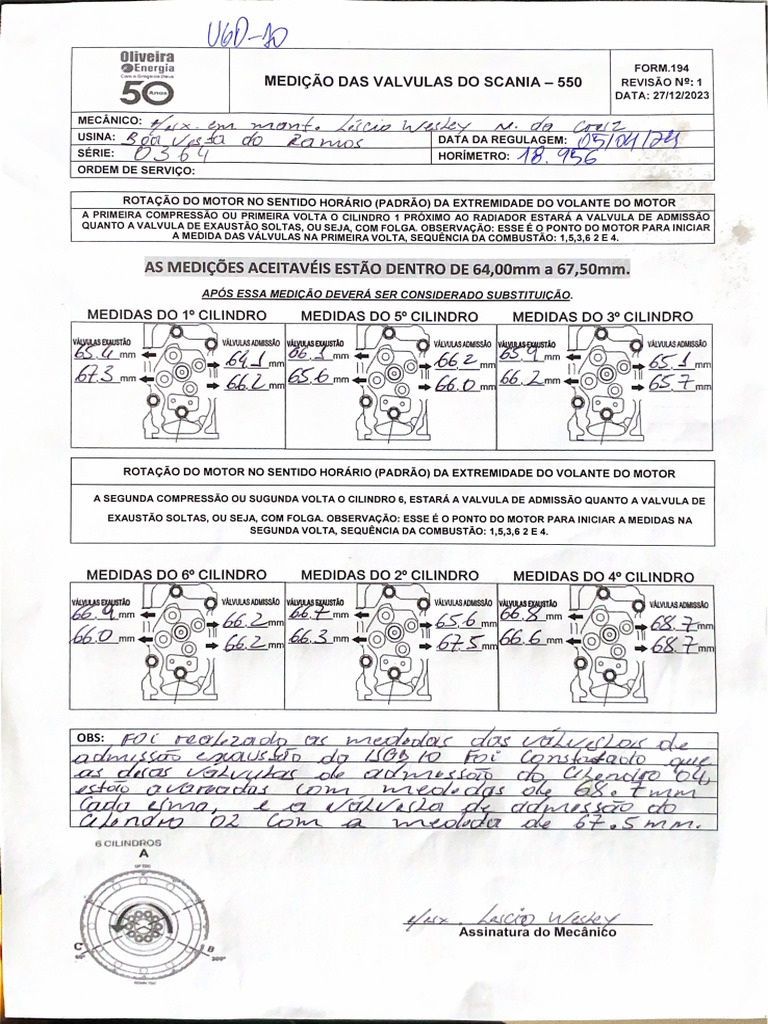 UGD-10
Oliveira
Energia
Com a Graça de Deus
50 Anos
MEDIÇÃO DAS VALVULAS DO SCANIA – 550
FORM.194
REVISÃO Nº: 1
DATA: 27/12/2023
MECÂNICO: Aux. em mant. Láscio Wesley N. da Cruz
USINA: Boa Vista do Ramos
DATA DA REGULAGEM: 05/04/24
SÉRIE: 0364
HORÍMETRO: 18.956
ORDEM DE SERVIÇO:
ROTAÇÃO DO MOTOR NO SENTIDO HORÁRIO (PADRÃO) DA EXTREMIDADE DO VOLANTE DO MOTOR
A PRIMEIRA COMPRESSÃO OU PRIMEIRA VOLTA O CILINDRO 1 PRÓXIMO AO RADIADOR ESTARÁ A VALVULA DE ADMISSÃO
QUANTO A VALVULA DE EXAUSTÃO SOLTAS, OU SEJA, COM FOLGA. OBSERVAÇÃO: ESSE É O PONTO DO MOTOR PARA INICIAR
A MEDIDA DAS VÁLVULAS NA PRIMEIRA VOLTA, SEQUÊNCIA DA COMBUSTÃO: 1,5,3,6 2 E 4.
AS MEDIÇÕES ACEITAVÉIS ESTÃO DENTRO DE 64,00mm a 67,50mm.
APÓS ESSA MEDIÇÃO DEVERÁ SER CONSIDERADO SUBSTITUIÇÃO.
MEDIDAS DO 1º CILINDRO
VÁLVULAS EXAUSTÃO
65.4 mm
67.3 mm
VÁLVULAS ADMISSÃO
64.1 mm
66.2 mm
MEDIDAS DO 5º CILINDRO
VÁLVULAS EXAUSTÃO
66.1 mm
65.6 mm
VÁLVULAS ADMISSÃO
66.2 mm
66.0 mm
MEDIDAS DO 3º CILINDRO
VÁLVULAS EXAUSTÃO
65.9 mm
66.2 mm
VÁLVULAS ADMISSÃO
65.1 mm
65.7 mm
ROTAÇÃO DO MOTOR NO SENTIDO HORÁRIO (PADRÃO) DA EXTREMIDADE DO VOLANTE DO MOTOR
A SEGUNDA COMPRESSÃO OU SUGUNDA VOLTA O CILINDRO 6, ESTARÁ A VALVULA DE ADMISSÃO QUANTO A VALVULA DE
EXAUSTÃO SOLTAS, OU SEJA, COM FOLGA. OBSERVAÇÃO: ESSE É O PONTO DO MOTOR PARA INICIAR A MEDIDAS NA
SEGUNDA VOLTA, SEQUÊNCIA DA COMBUSTÃO: 1,5,3,6 2 E 4.
MEDIDAS DO 6º CILINDRO
VÁLVULAS EXAUSTÃO
66.9 mm
66.0 mm
VÁLVULAS ADMISSÃO
66.2 mm
66.2 mm
MEDIDAS DO 2º CILINDRO
VÁLVULAS EXAUSTÃO
66.7 mm
66.3 mm
VÁLVULAS ADMISSÃO
65.6 mm
67.5 mm
MEDIDAS DO 4º CILINDRO
VÁLVULAS EXAUSTÃO
66.8 mm
66.6 mm
VÁLVULAS ADMISSÃO
68.7 mm
68.7 mm
OBS: Foi realizado as medidas das válvulas de
admissão exaustão da UGD 10 Foi Constatado que
as duas válvulas de admissão do Cilindro 04,
estão avariadas com medidas de 68.7mm
Cada uma, e a válvula de admissão do
Cilindro 02 com a medida de 67.5mm.
6 CILINDROS
A
C
B
Aux. Láscio Wesley
Assinatura do Mecânico